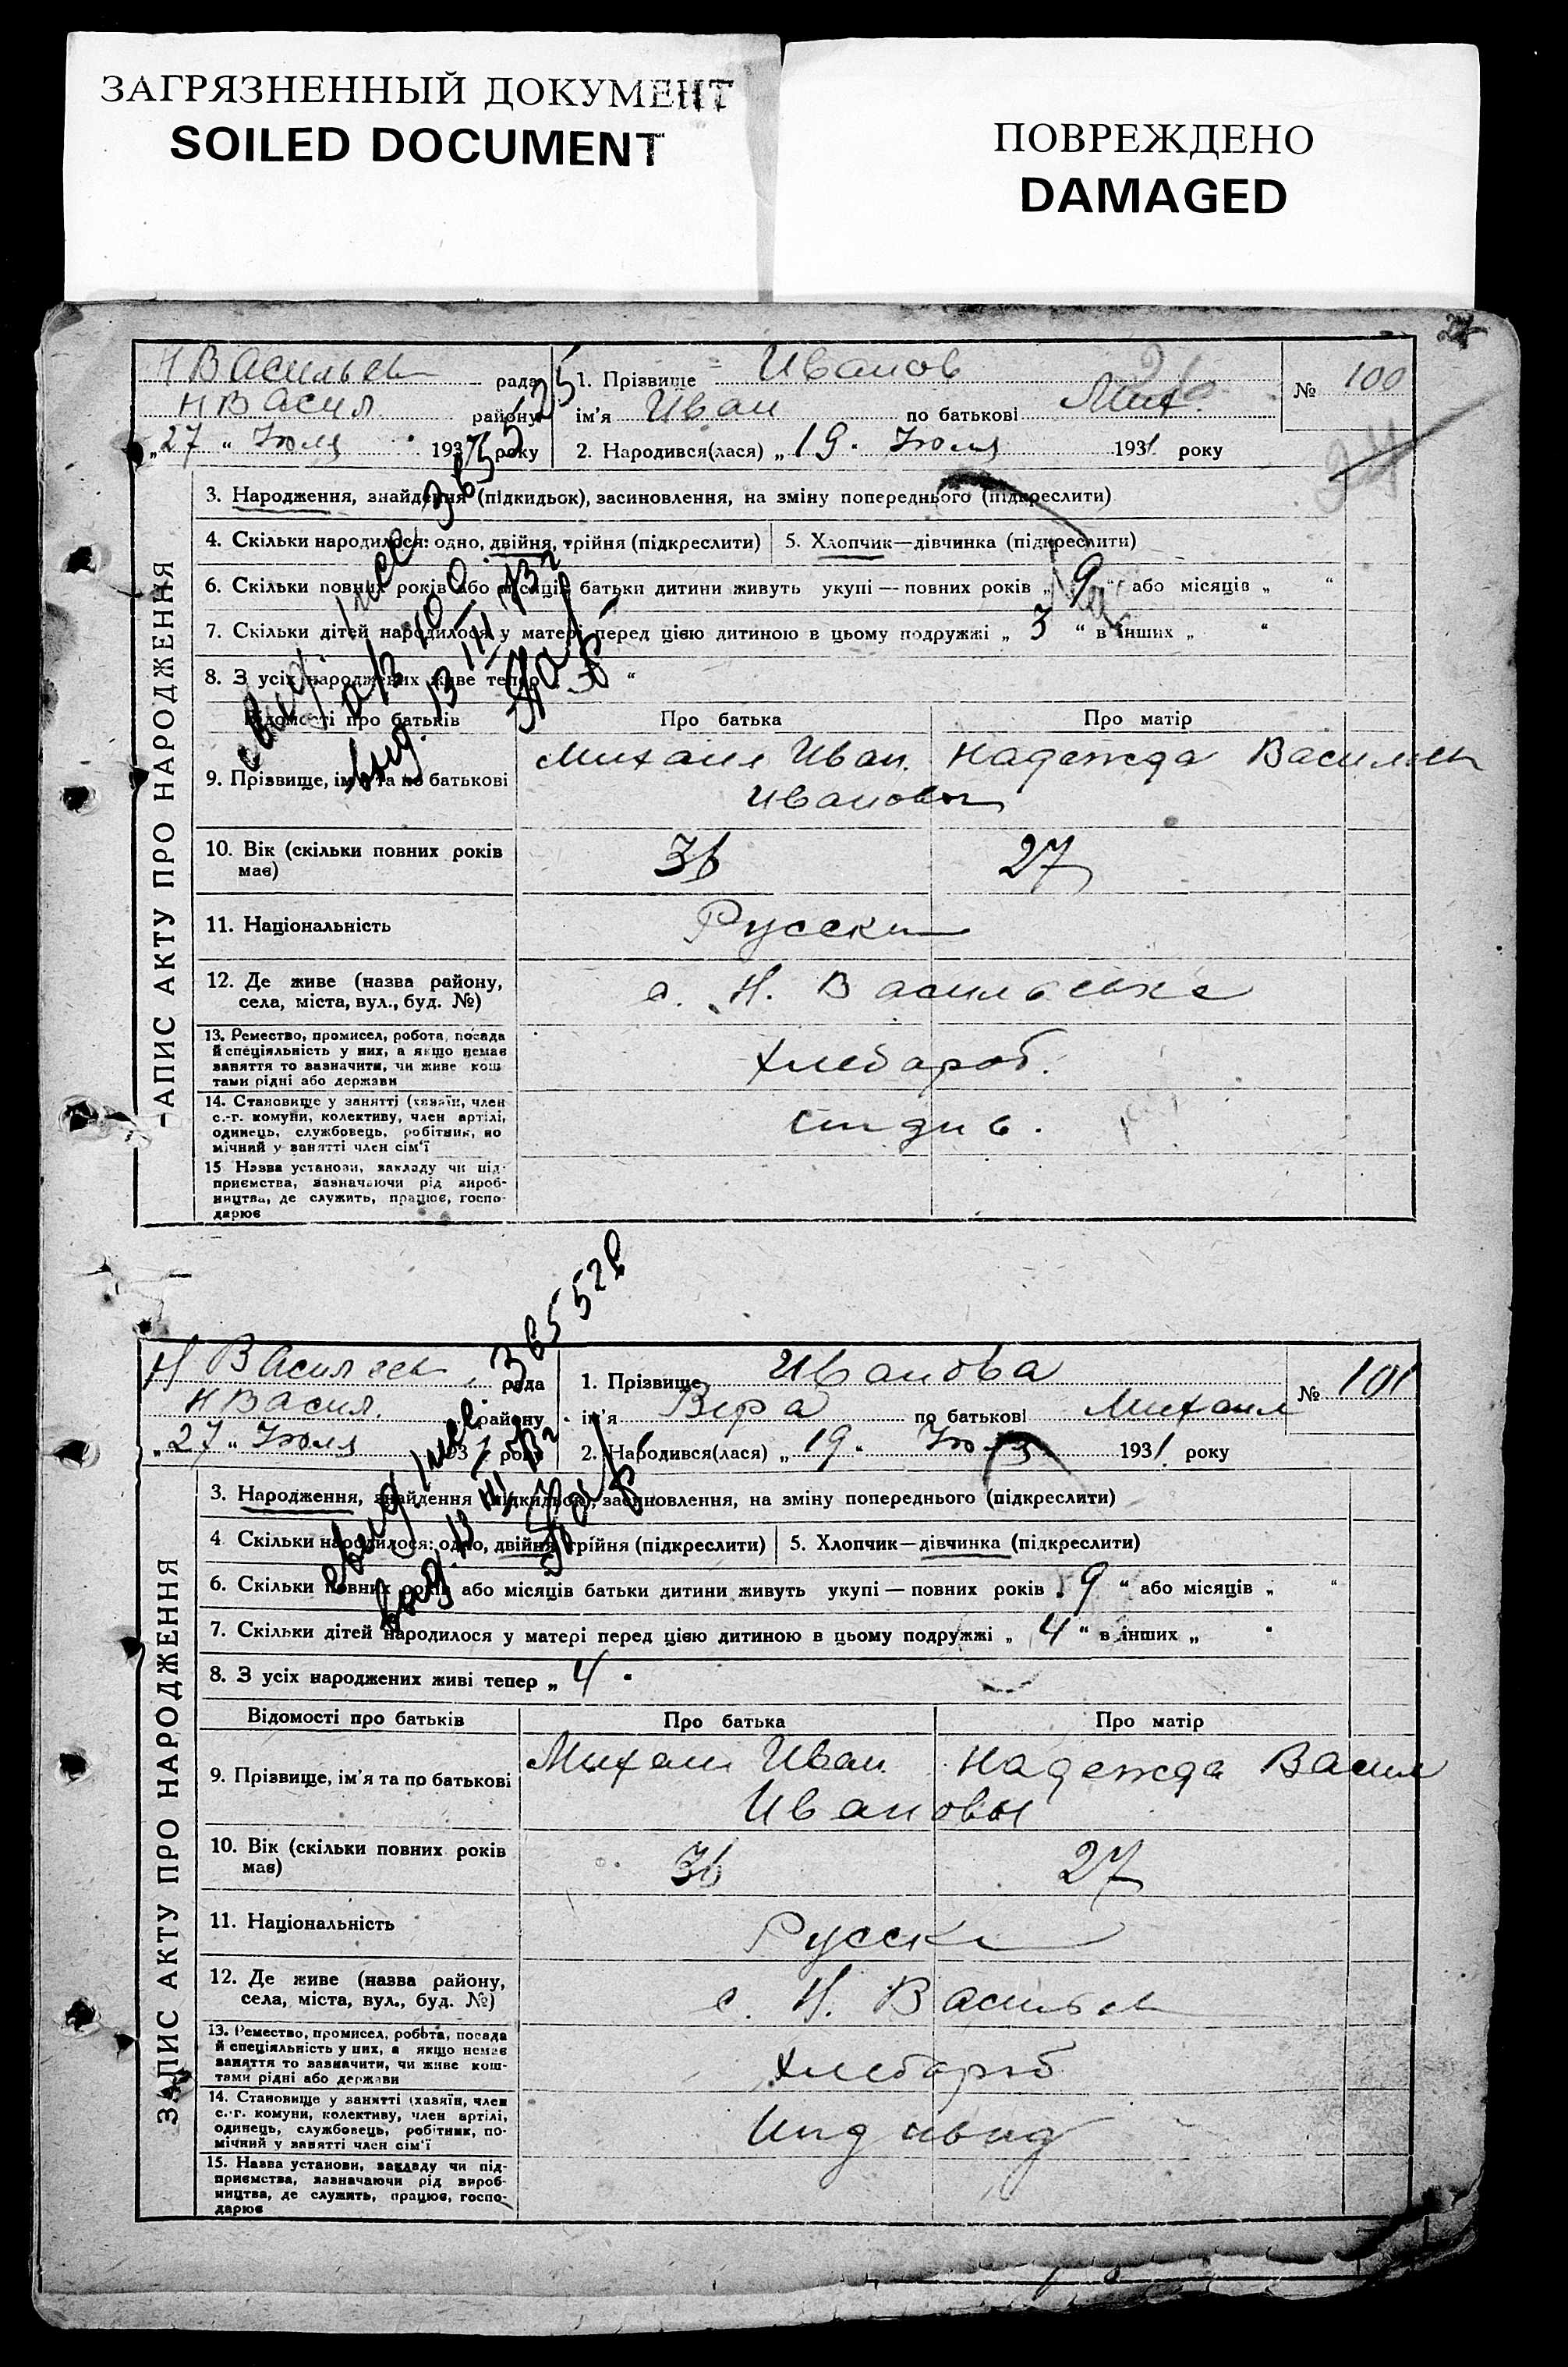 ЗАГРЯЗНЕННЫЙ ДОКУМЕНТ
SOILED DOCUMENT
ПОВРЕЖДЕНО
DAMAGED
Н Васильев рада
Н Васил. району
„27 “ Июля 1931 року
1. Прізвище Иванов
№ 100
ім’я Иван по батькові Мих.
2. Народився(лася) „19 “ Июля 1931 року
24
-АПИС АКТУ ПРО НАРОДЖЕННЯ
3. Народження, знайдення (підкидьок), засиновлення, на зміну попереднього (підкреслити)
4. Скільки народилося: одно, двійня, трійня (підкреслити)
5. Хлопчик—дівчинка (підкреслити)
6. Скільки повних років або місяців батьки дитини живуть укупі — повних років „ 9 “ або місяців „ “
7. Скільки дітей народилося у матері перед цією дитиною в цьому подружжі „ 3 “ в інших „ “
8. З усіх народжених живе тепер „ 3 “
Відомості про батьків Про батька Про матір
9. Прізвище, ім’я та по батькові Михаил Иван. Надежда Васильев
Ивановы
10. Вік (скільки повних років має) 36 27
11. Національність Русски
12. Де живе (назва району, села, міста, вул., буд. №) с. Н. Васильевке
13. Ремество, промисел, робота, посада
й спеціяльність у них, а якщо немає
заняття то зазначити, чи живе кош
тами рідні або держави
Хлебароб.
14. Становище у занятті (хазяїн, член
с.-г. комуни, колективу, член артілі,
одинець, службовець, робітник, по
мічний у занятті член сім’ї
индив.
15 Назва установи, закладу чи під-
приємства, зазначаючи рід вироб-
ництва, де служить, працює, госпо-
дарює
365526
Н Василев рада
Н Васил. району
„27 “ Июля 1931 року
1. Прізвище Иванова
№ 101
ім’я Вера по батькові Михаил
2. Народився(лася) „19 “ Июля 1931 року
ЗАПИС АКТУ ПРО НАРОДЖЕННЯ
3. Народження, знайдення (підкидьок), засиновлення, на зміну попереднього (підкреслити)
4 Скільки народилося: одно, двійня, трійня (підкреслити)
5. Хлопчик—дівчинка (підкреслити)
6. Скільки повних років або місяців батьки дитини живуть укупі — повних років „ 9 “ або місяців „ “
7. Скільки дітей народилося у матері перед цією дитиною в цьому подружжі „ 4 “ в інших „ “
8. З усіх народжених живі тепер „ 4 “
Відомості про батьків Про батька Про матір
9. Прізвище, ім’я та по батькові Михаил Иван. Надежда Васил
Ивановы
10. Вік (скільки повних років має) 36 27
11. Національність Русски
12. Де живе (назва району, села, міста, вул., буд. №) с. Н. Васильев
13. Ремество, промисел, робота, посада
й спеціяльність у них, а якщо немає
заняття то зазначити, чи живе кош-
тами рідні або держави
Хлебароб
14. Становище у занятті (хазяїн, член
с.-г. комуни, колективу, член артілі,
одинець, службовець, робітник, по-
мічний у занятті член сім’ї
Индивид
15. Назва установи, закладу чи під-
приємства, зазначаючи рід вироб-
ництва, де служить, працює, госпо-
дарює